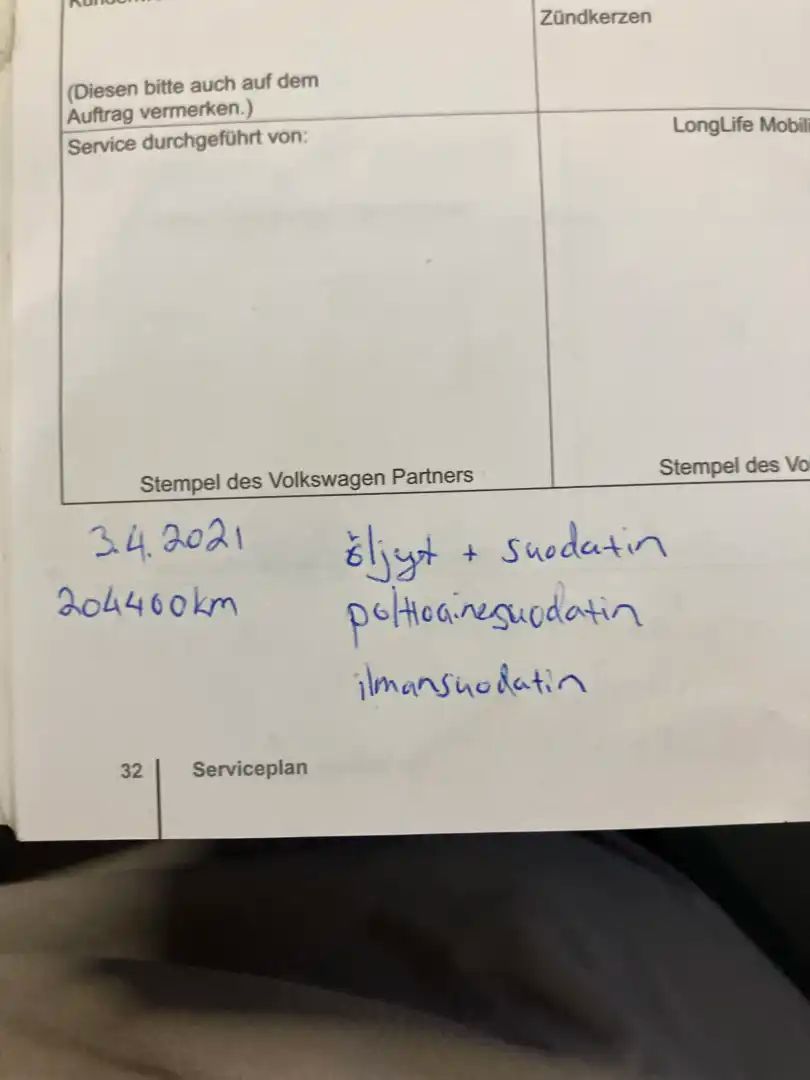 Zündkerzen
(Diesen bitte auch auf dem
Auftrag vermerken.)
Service durchgeführt von:
LongLife Mobili
Stempel des Volkswagen Partners
Stempel des Vo
3.4.2021 öljyt + suodatin
204460km polttoainesuodatin
ilmansuodatin
32 Serviceplan